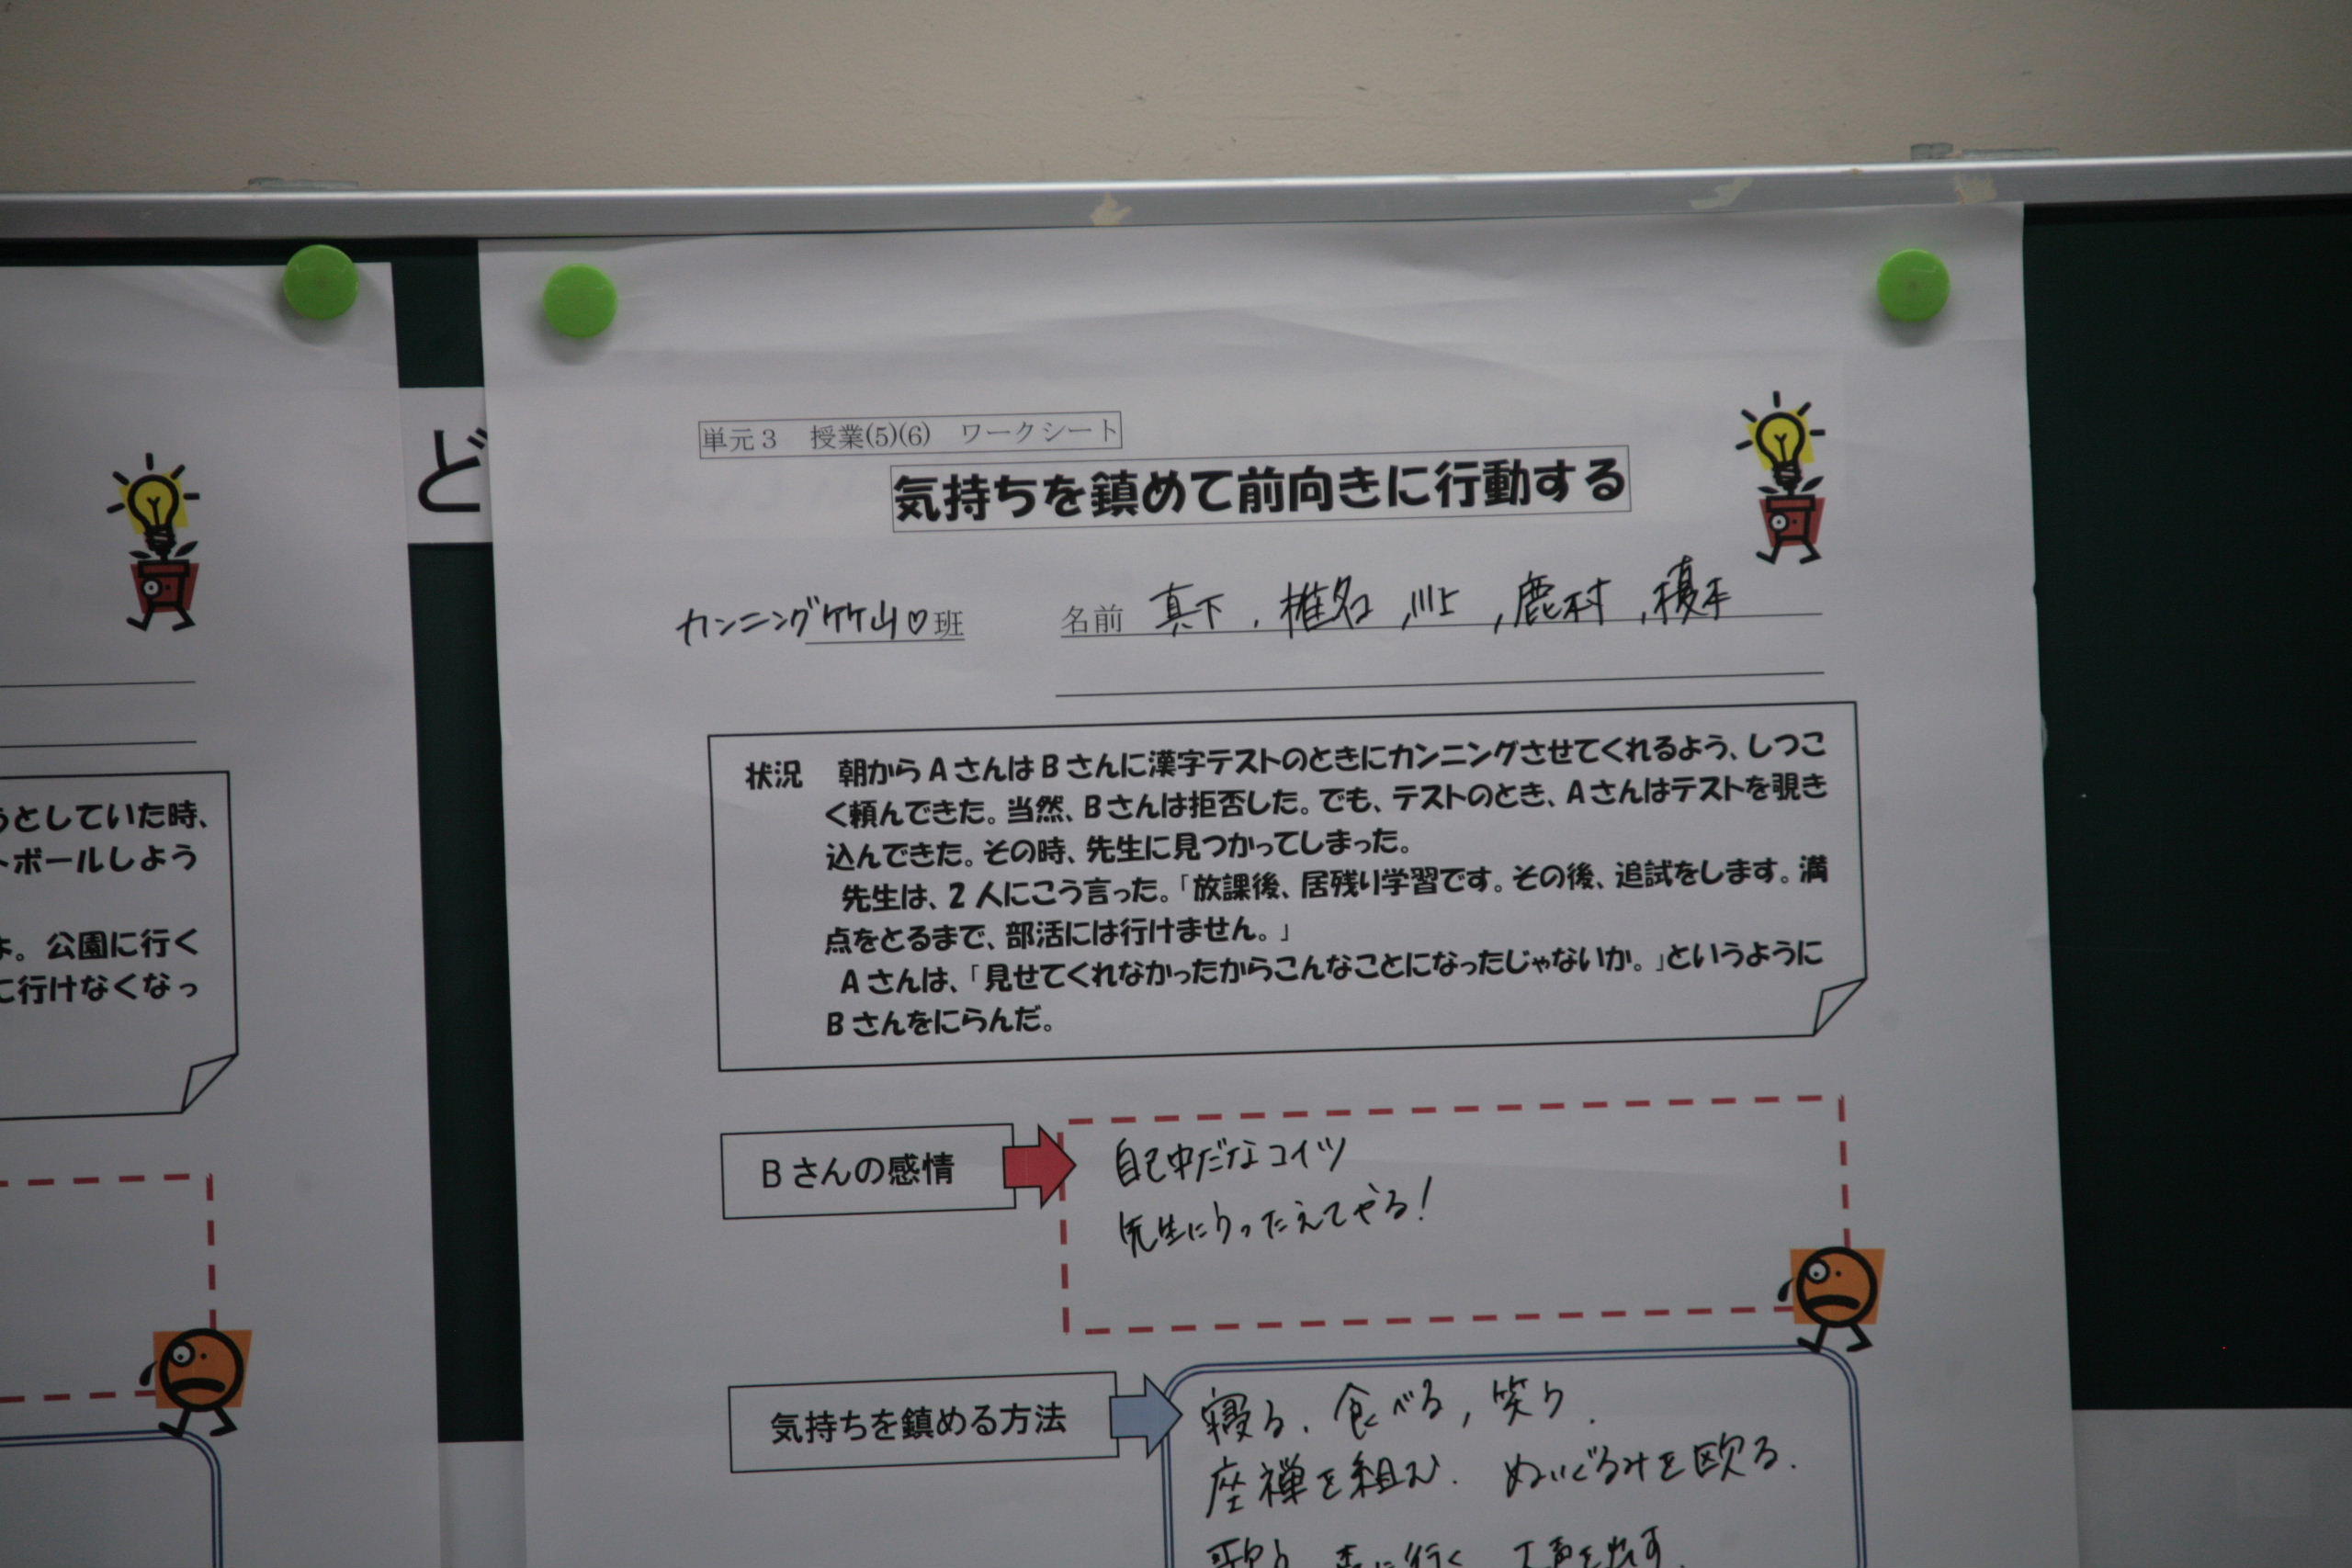 うとしていた時、
トボールしよう
よ。公園に行く
に行けなくなっ
ど
単元3 授業(5)(6) ワークシート
気持ちを鎮めて前向きに行動する
カンニング竹山♡班 名前 真下,椎名,川上,鹿村,榎本
状況 朝からAさんはBさんに漢字テストのときにカンニングさせてくれるよう、しつこ
く頼んできた。当然、Bさんは拒否した。でも、テストのとき、Aさんはテストを覗き
込んできた。その時、先生に見つかってしまった。
先生は、2人にこう言った。「放課後、居残り学習です。その後、追試をします。満
点をとるまで、部活には行けません。」
Aさんは、「見せてくれなかったからこんなことになったじゃないか。」というように
Bさんをにらんだ。
Bさんの感情
自己中だなコイツ
先生にうったえてやる!
気持ちを鎮める方法
寝る、食べる,笑う.
座禅を組む. ぬいぐるみを殴る.
歌う 行く 大声を出す.